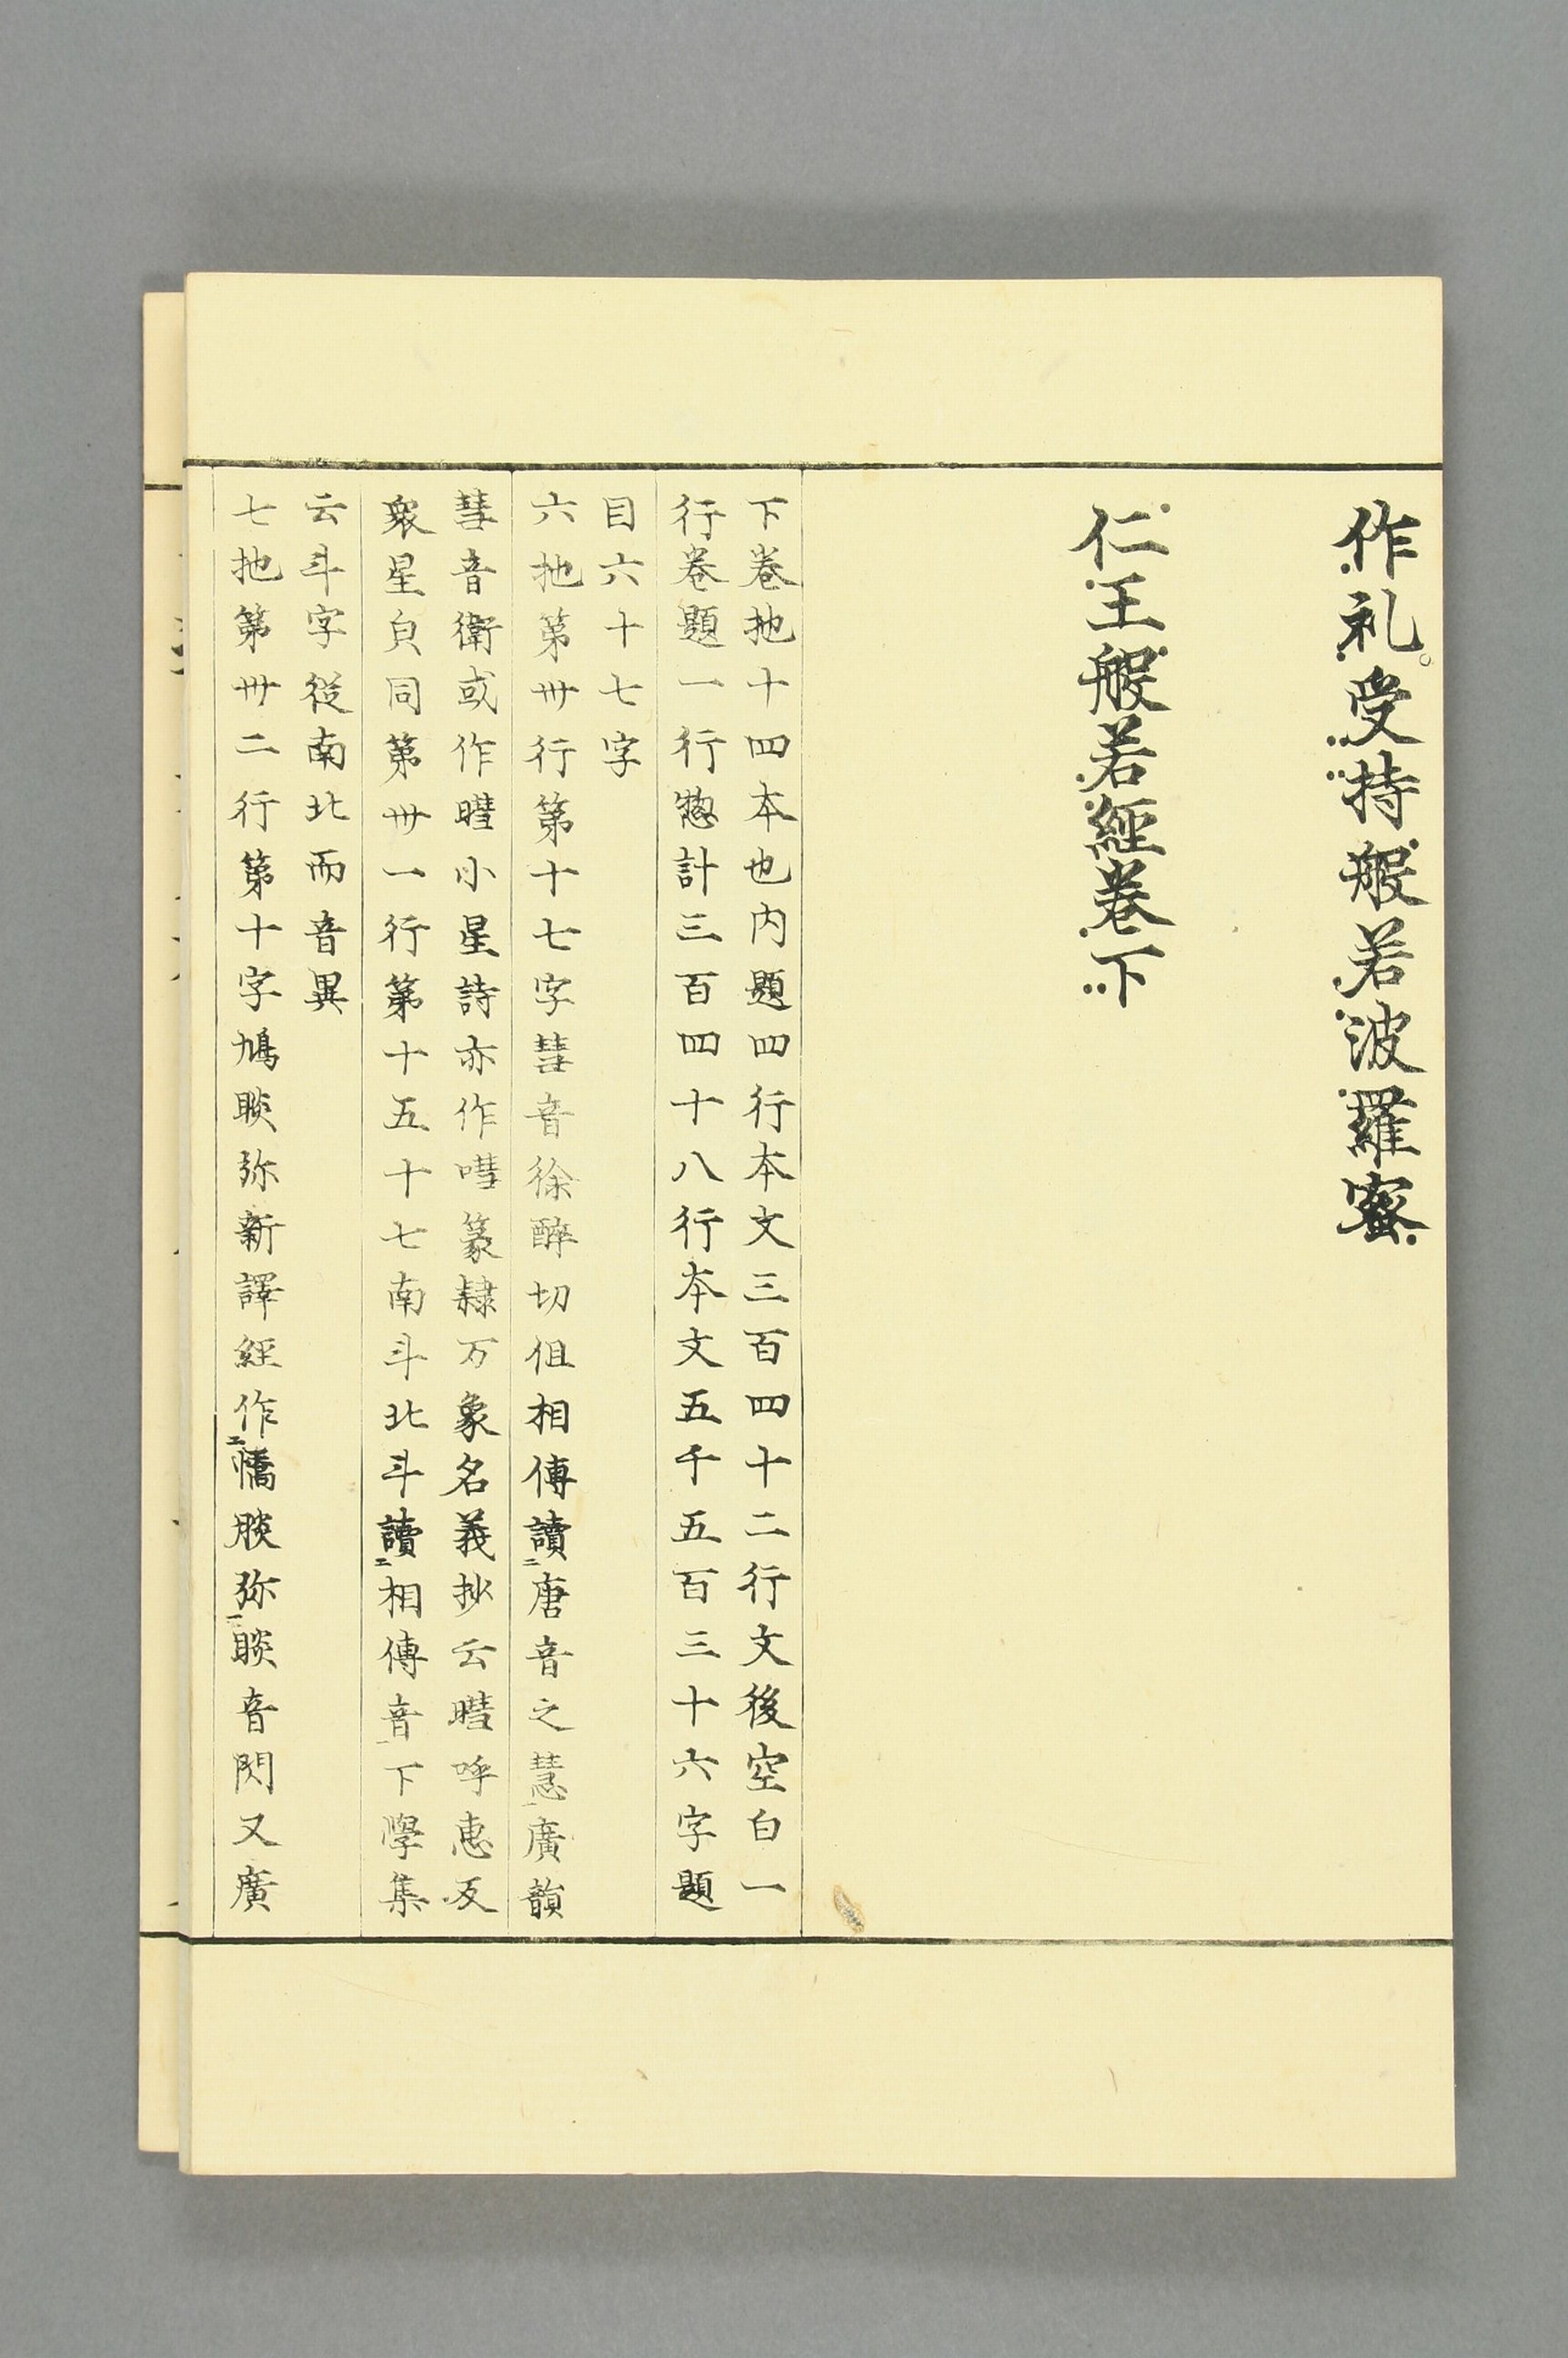 作礼受持般若波羅蜜
仁王般若經卷下
下卷地十四本也内題四行本文三百四十二行文後空白一
行卷題一行惣計三百四十八行本文五千五百三十六字題
目六十七字
六地第卅行第十七字彗音徐醉切但相傳讀二唐音之慧一廣韻
彗音衛或作暳小星詩亦作嘒篆隸万象名義抄云暳呼惠反
衆星皃同第卅一行第十五十七南斗北斗讀二相傳音一下學集
云斗字従南北而音異
七地第卅二行第十字鳩睒弥新譯經作二憍睒弥一睒音閃又廣